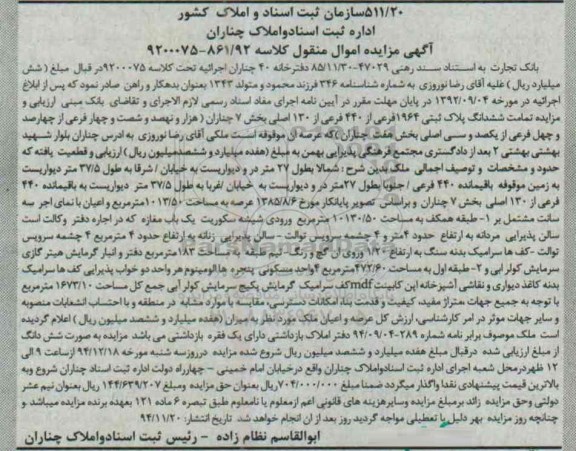 ۵۱۱/۲۰سازمان ثبت اسناد و املاک کشور
اداره ثبت اسنادواملاک چناران
آگهی مزایده اموال منقول کلاسه ۸۶۱/۹۲-۹۲۰۰۰۷۵
بانک تجارت به استناد سند رهنی ۴۷۰۲۹-۸۵/۱۱/۳۰ دفترخانه ۴۰ چناران اجرائیه تحت کلاسه ۹۲۰۰۰۷۵در قبال مبلغ (شش
میلیارد ریال) علیه آقای رضا نوروزی به شماره شناسنامه ۳۴۶ فرزند محمود و متولد ۱۳۴۳ بعنوان بدهکار و راهن صادر نمود که پس از ابلاغ
اجرائیه در مورخه ۱۳۹۲/۰۹/۰۴ در پایان مهلت مقرر در آیین نامه اجرای مفاد اسناد رسمی لازم الاجرای و تقاضای بانک مبنی ارزیابی و
مزایده تمامت ششدانگ پلاک ثبتی ۱۹۶۴فرعی از ۴۴۰ فرعی از ۱۳۰ اصلی بخش ۷ چناران (هزار و نهصد و شصت و چهار فرعی از چهارصد
و چهل فرعی از یکصد و سی اصلی بخش هفت چناران )که عرصه آن موقوفه است ملکی آقای رضا نوروزی به ادرس چناران بلوار شهید
بهشتی بهشتی ۲ بعد از دادگستری مجتمع فرهنگی پذیرایی بهمن به مبلغ (هفده میلیارد و ششصدمیلیون ریال) ارزیابی و قطعیت یافته که
حدود و مشخصات و توصیف اجمالی ملک بدین شرح : شمالا بطول ۲۷ متر در و دیواریست به خیابان / شرقا به طول ۳۷/۵ متر دیواریست
به زمین موقوفه باقیمانده ۴۴۰ فرعی / جنوبا بطول ۲۷متر در و دیواریست به خیابان /غربا به طول ۳۷/۵ متر دیواریست به باقیمانده ۴۴۰
فرعی از ۱۳۰ اصلی بخش ۷ چناران و براساس تصویر پایانکار مورخ ۱۳۸۵/۸/۶ عرصه به مساحت ۱۰۱۳/۵۰مترمربع و اعیان با نمای اجر سه
سانت مشتمل بر ۱-طبقه همکف به مساحت ۱۰۱۳/۵۰ مترمربع ورودی شیشه سکوریت یک باب مغازه که در اجاره دفتر وکالت است
سالن پذیرایی مردانه به ارتفاع حدود ۴متر و ۴ چشمه سرویس توالت -سالن پذیرایی زنانه به ارتفاع حدود ۴ مترمربع ۴ چشمه سرویس
توالت -کف ها سرامیک بدنه سنگ به ارتفاع ۱/۲۰ وروی آن گچ و رنگ- نیم طبقه به مساحت ۱۸۳مترمربع دفتر و انبار گرمایش هیتر گازی
سرمایش کولر آبی و ۲-طبقه اول به مساحت ۴۷۷/۶۰مترمربع ۴واحد مسکونی پنجره ها الومینیوم هر واحد دو خواب پذیرایی کف ها سرامیک
بدنه کاغذ دیواری و نقاشی آشپزخانه اپن کابینت mdfکف سرامیک گرمایش پکیج سرمایش کولر آبی جمع کل مساحت ۱۶۷۳/۱۰ مترمربع
با توجه به جمیع جهات متراژ مفید، کیفیت و قدمت بنا، امکانات دسترسی، مقایسه با موارد مشابه در منطقه و با احتساب انشعابات منصوبه
و سایر جهات موثر در امر کارشناسی، ارزش کل عرصه و اعیان ملک مورد نظر به میزان (هفده میلیارد و ششصد میلیون ریال) اعلام گردیده
است ملک موصوف برابر نامه شماره ۲۸۹-۹۴/۰۹/۰۴ دفتر املاک بازداشتی دارای یک فقره بازداشتی می باشد مزایده به صورت شش دانگ
از مبلغ ارزیابی شده درقبال مبلغ هفده میلیارد و ششصد میلیون ریال شروع شده مزایده درروزسه شنبه مورخه ۹۴/۱۲/۱۸ ازساعت ۹ الی
۱۲ ظهردرمحل شعبه اجرای اداره ثبت اسنادواملاک چناران واقع درخیابان امام خمینی -چهارراه دولت اداره ثبت اسناد چناران شروع وبه
بالاترین قیمت پیشنهادی نقدا واگذار میگردد ضمنا مبلغ ۷۰۴/۰۰۰/۰۰۰ریال بعنوان حق مزایده ومبلغ ۱۴۴/۶۳۹/۲۰۷ ریال بعنوان نیم عشر
دولتی وحق مزایده زائد برمبلغ مزایده وسایرهزینه های قانونی اعم ازمعلوم یا نامعلوم طبق تبصره ۶ ماده ۱۲۱ بعهده برنده مزایده میباشد و
چنانچه روز مزایده بهر دلیل با تعطیلی مواجه گردید روز بعد از ان انجام خواهد شد تاریخ انتشار: ۹۴/۱۱/۲۰
ابوالقاسم نظام زاده - رئیس ثبت اسنادواملاک چناران